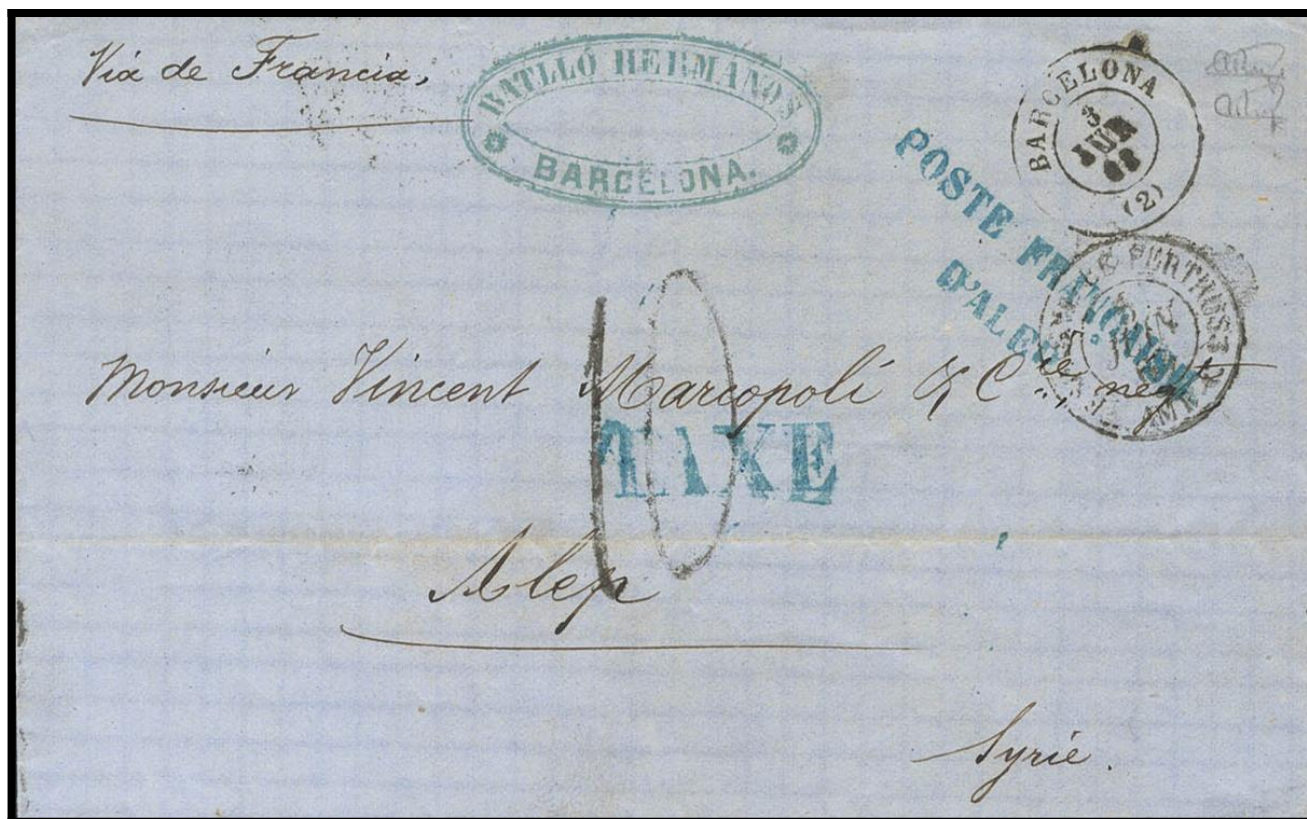 Via de Francia,
BATLLÓ HERMANOS
BARCELONA.
BARCELONA
3
JUN
(2)
POSTE FRANÇAISE
D'ALEP
PERTHUS
Monsieur Vincent Marcopoli & Cie negts
10
TAXE
Alep
Syrie.